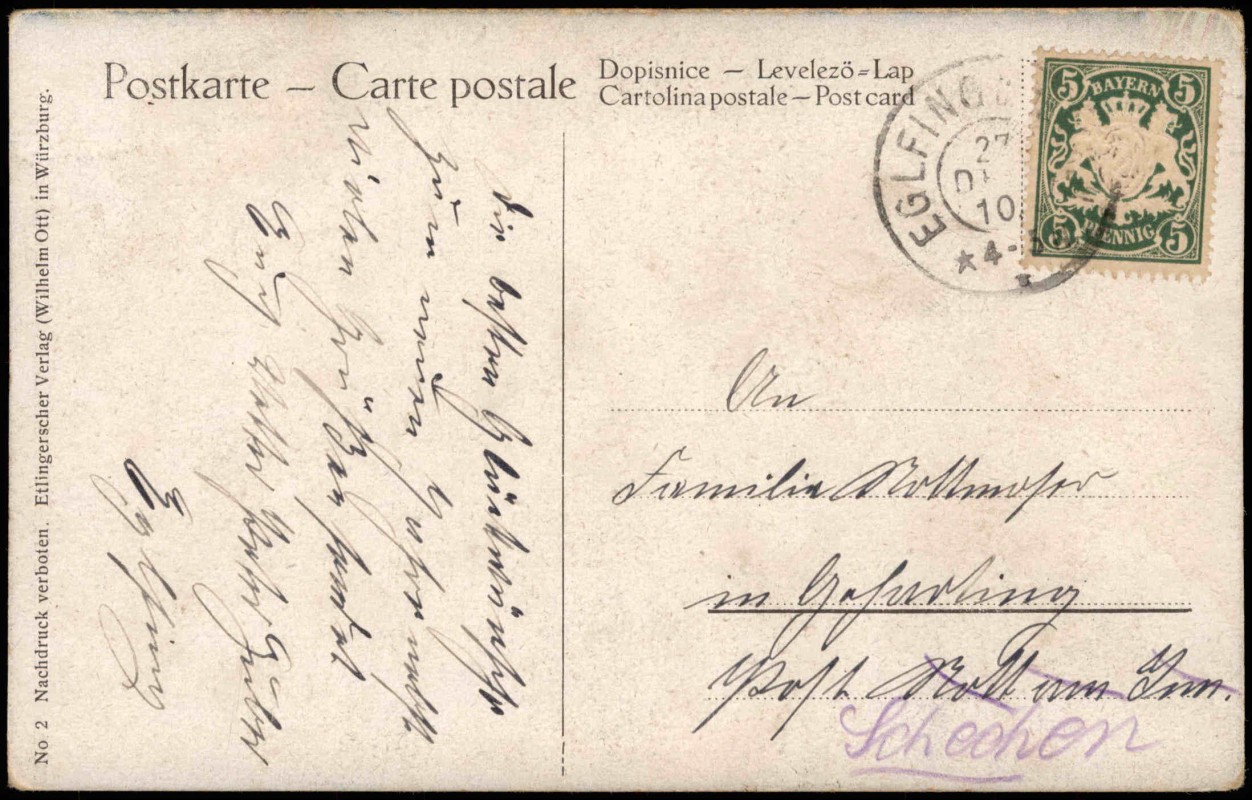 Postkarte – Carte postale
Dopisnice – Levelező-Lap
Cartolina postale – Post card
EGLFING
27
10
★ 4-5
5 BAYERN 5
5 PFENNIG 5
No. 2 Nachdruck verboten. Etlingerscher Verlag (Wilhelm Ott) in Würzburg.
Die besten Glückwünsche
zum neuen Jahre nebst
vielen Grüßen sendet
Euch Vetter
Eglfing
An
Familie Rottmoser
in
Post Rott am Inn.
Schechen